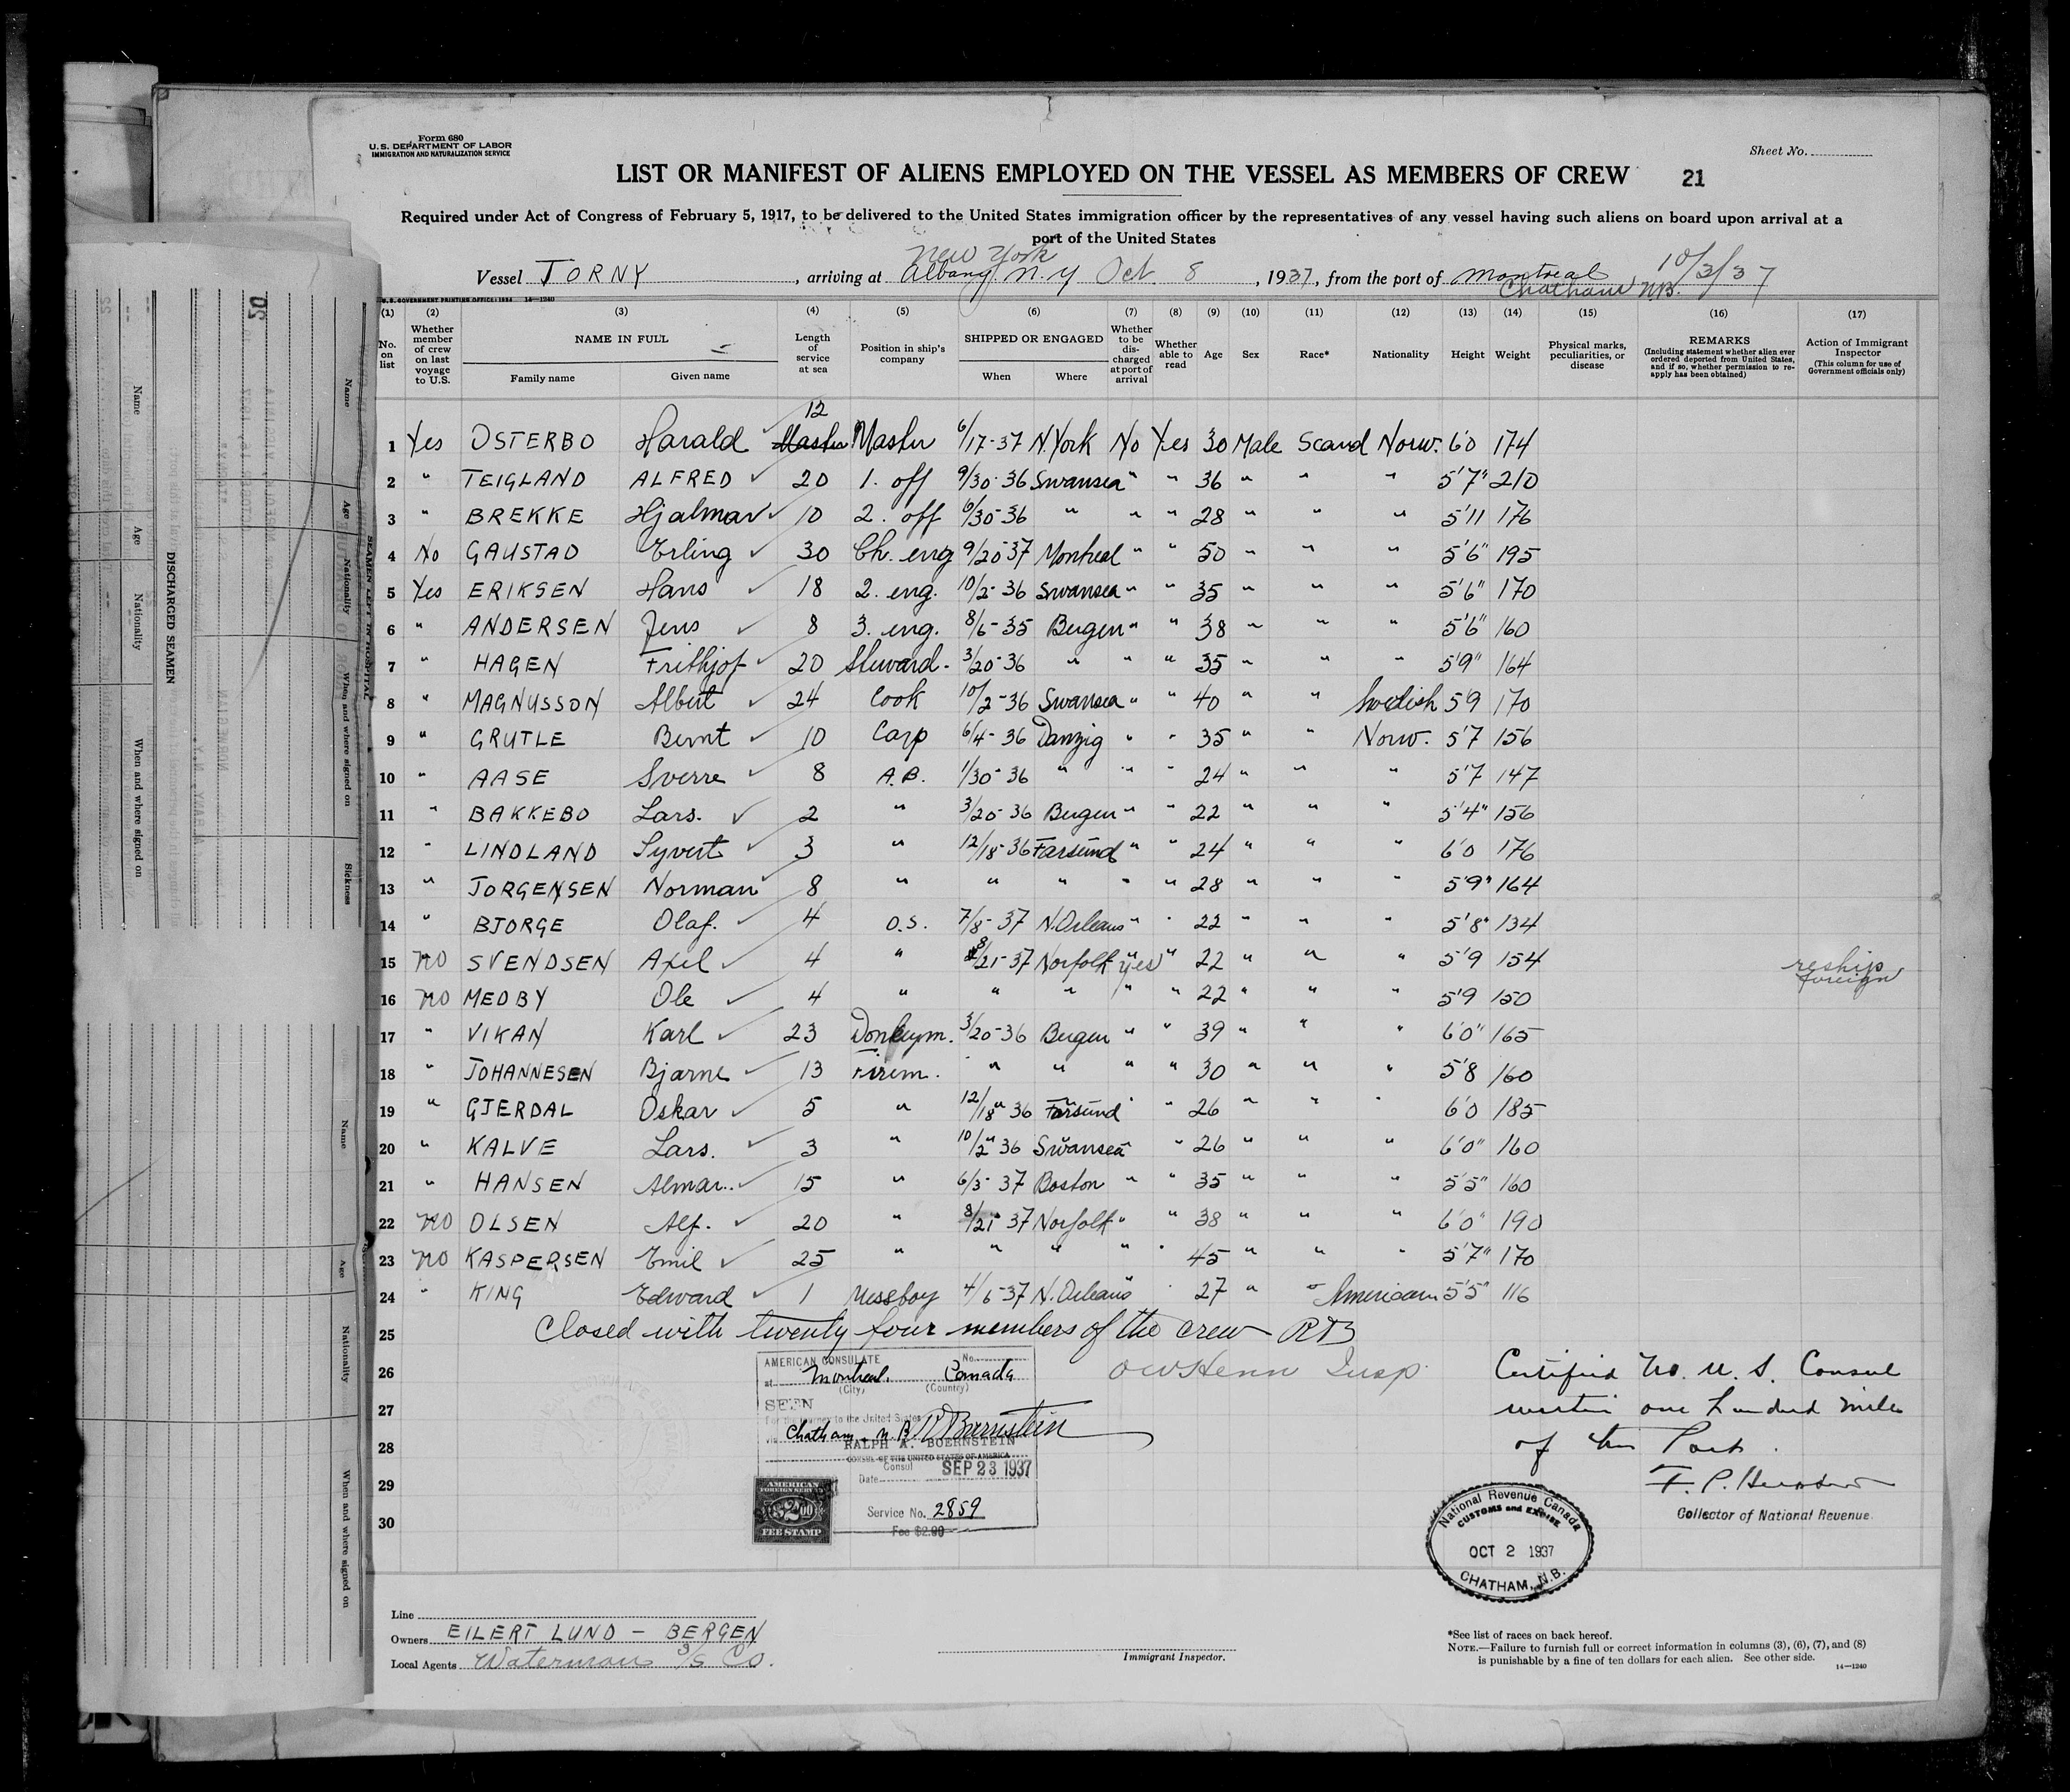 Form 680
U.S. DEPARTMENT OF LABOR
IMMIGRATION AND NATURALIZATION SERVICE
Sheet No.
LIST OR MANIFEST OF ALIENS EMPLOYED ON THE VESSEL AS MEMBERS OF CREW 21
Required under Act of Congress of February 5, 1917, to be delivered to the United States immigration officer by the representatives of any vessel having such aliens on board upon arrival at a
port of the United States
New York
Vessel TORNY, arriving at Albany, N.Y Oct. 8, 1937, from the port of Montreal 10/3/37
Chatham NB.
U.S. GOVERNMENT PRINTING OFFICE: 1934 14—1240
(1) (2) (3) (4) (5) (6) (7) (8) (9) (10) (11) (12) (13) (14) (15) (16) (17)
No. on list
Whether member of crew on last voyage to U.S.
NAME IN FULL
Family name Given name
Length of service at sea
Position in ship's company
SHIPPED OR ENGAGED
When Where
Whether to be discharged at port of arrival
Whether able to read
Age
Sex
Race*
Nationality
Height
Weight
Physical marks, peculiarities, or disease
REMARKS
(Including statement whether alien ever ordered deported from United States, and if so, whether permission to reapply has been obtained)
Action of Immigrant Inspector
(This column for use of Government officials only)
12
1 Yes OSTERBO Harald ✓ Master Master 6/17-37 N.York No Yes 30 Male Scand Norw. 6'0 174
2 " TEIGLAND ALFRED ✓ 20 1. off 9/30-36 Swansea " " 36 " " " 5'7" 210
3 " BREKKE Hjalmar ✓ 10 2. off 9/30-36 " " " 28 " " " 5'11 176
4 No GAUSTAD Erling ✓ 30 Ch. eng 9/20-37 Montreal " " 50 " " " 5'6" 195
5 Yes ERIKSEN Hans ✓ 18 2. eng. 10/2-36 Swansea " " 35 " " " 5'6" 170
6 " ANDERSEN Jens ✓ 8 3. eng. 8/6-35 Bergen " " 38 " " " 5'6" 160
7 " HAGEN Frithjof ✓ 20 Steward. 3/20-36 " " " 35 " " " 5'9" 164
8 " MAGNUSSON Albert ✓ 24 Cook 10/2-36 Swansea " " 40 " " Swedish 5'9 170
9 " GRUTLE Bernt ✓ 10 Carp 6/4-36 Danzig " " 35 " " Norw. 5'7 156
10 " AASE Sverre ✓ 8 A.B. 1/30-36 " " " 24 " " " 5'7 147
11 " BAKKEBO Lars. ✓ 2 " 3/20-36 Bergen " " 22 " " " 5'4" 156
12 " LINDLAND Syvert ✓ 3 " 12/18-36 Farsund " " 24 " " " 6'0 176
13 " JORGENSEN Norman ✓ 8 " " " " " 28 " " " 5'9" 164
14 " BJORGE Olaf. ✓ 4 O.S. 7/8-37 N.Orleans " " 22 " " " 5'8" 134
15 no SVENDSEN Axel ✓ 4 " 8/21-37 Norfolk yes " 22 " " " 5'9 154 reship foreign
16 no MEDBY Ole ✓ 4 " " " " " 22 " " " 5'9 150
17 " VIKAN Karl ✓ 23 Donkeym. 3/20-36 Bergen " " 39 " " " 6'0" 165
18 " JOHANNESEN Bjarne ✓ 13 Firem. " " " " 30 " " " 5'8 160
19 " GJERDAL Oskar ✓ 5 " 12/18 36 Farsund " " 26 " " " 6'0 185
20 " KALVE Lars. ✓ 3 " 10/2 36 Swansea " " 26 " " " 6'0" 160
21 " HANSEN Almar. ✓ 15 " 6/3-37 Boston " " 35 " " " 5'5" 160
22 no OLSEN Alf. ✓ 20 " 8/21-37 Norfolk " " 38 " " " 6'0" 190
23 no KASPERSEN Emil ✓ 25 " " " " " 45 " " " 5'7" 170
24 " KING Edward ✓ 1 Messboy 4/6-37 N.Orleans " " 27 " " American 5'5" 116
25 Closed with twenty four members of the crew RAB
26 OW Henn Insp. Certified no. U. S. Consul
27 within one hundred miles
28 of this Port.
29
30
AMERICAN CONSULATE No.
at Montreal, Canada
(City) (Country)
SEEN
For the journey to the United States
via Chatham, N.B. R Boernstein
RALPH A. BOERNSTEIN
CONSUL OF THE UNITED STATES OF AMERICA
Consul
Date SEP 23 1937
Service No. 2859
Fee $2.00
AMERICAN
FOREIGN SERVICE
$2.00
FEE STAMP
Collector of National Revenue
National Revenue Canada
CUSTOMS and EXCISE
OCT 2 1937
CHATHAM, N.B.
Line
Owners EILERT LUND - BERGEN
Local Agents Waterman S/S Co.
Immigrant Inspector.
*See list of races on back hereof.
NOTE.—Failure to furnish full or correct information in columns (3), (6), (7), and (8)
is punishable by a fine of ten dollars for each alien. See other side.
14—1240
20
DISCHARGED SEAMEN
Name
Age
Nationality
When and where signed on
SEAMEN LEFT IN HOSPITAL
Name
Age
Nationality
When and where signed on
Sickness
Name
Age
Nationality
When and where signed on